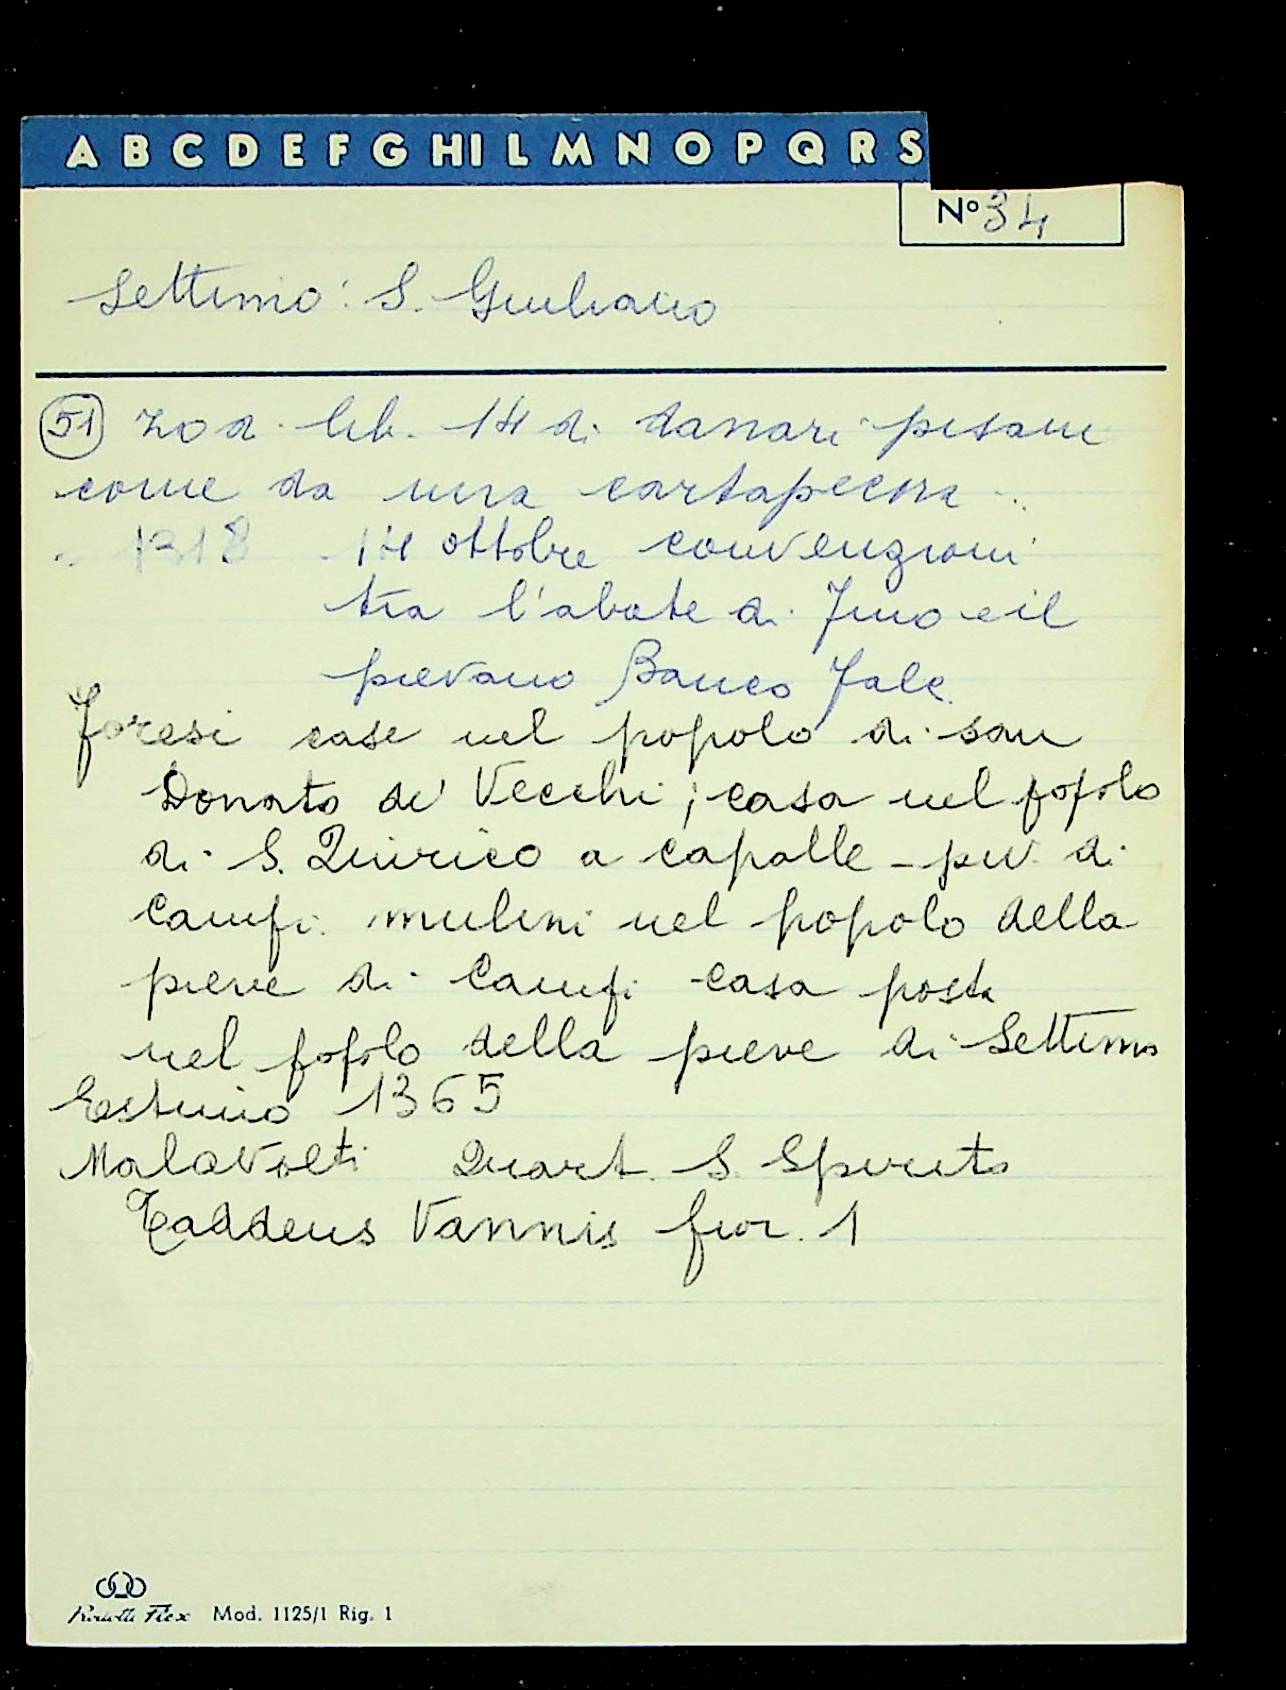 A B C D E F G H I L M N O P Q R S
N° 34
Settimo: S. Giuliano
51 zo di lib. 14 di danari pisani
come da una cartapecora
" 1318 14 ottobre convenzioni
tra l'abate di e il
pievano Banco Falc.
Foresi case nel popolo di san
Donato de' Vecchi; casa nel popolo
di S. Quirico a capalle - piv. di
Campi. mulini nel popolo della
pieve di Campi casa posta
nel popolo della pieve di Settimo
Estimo 1365
Malavolti Quart. S. Spirito
Taddeus Vannis fior. 1
Flex Mod. 1125/1 Rig. 1